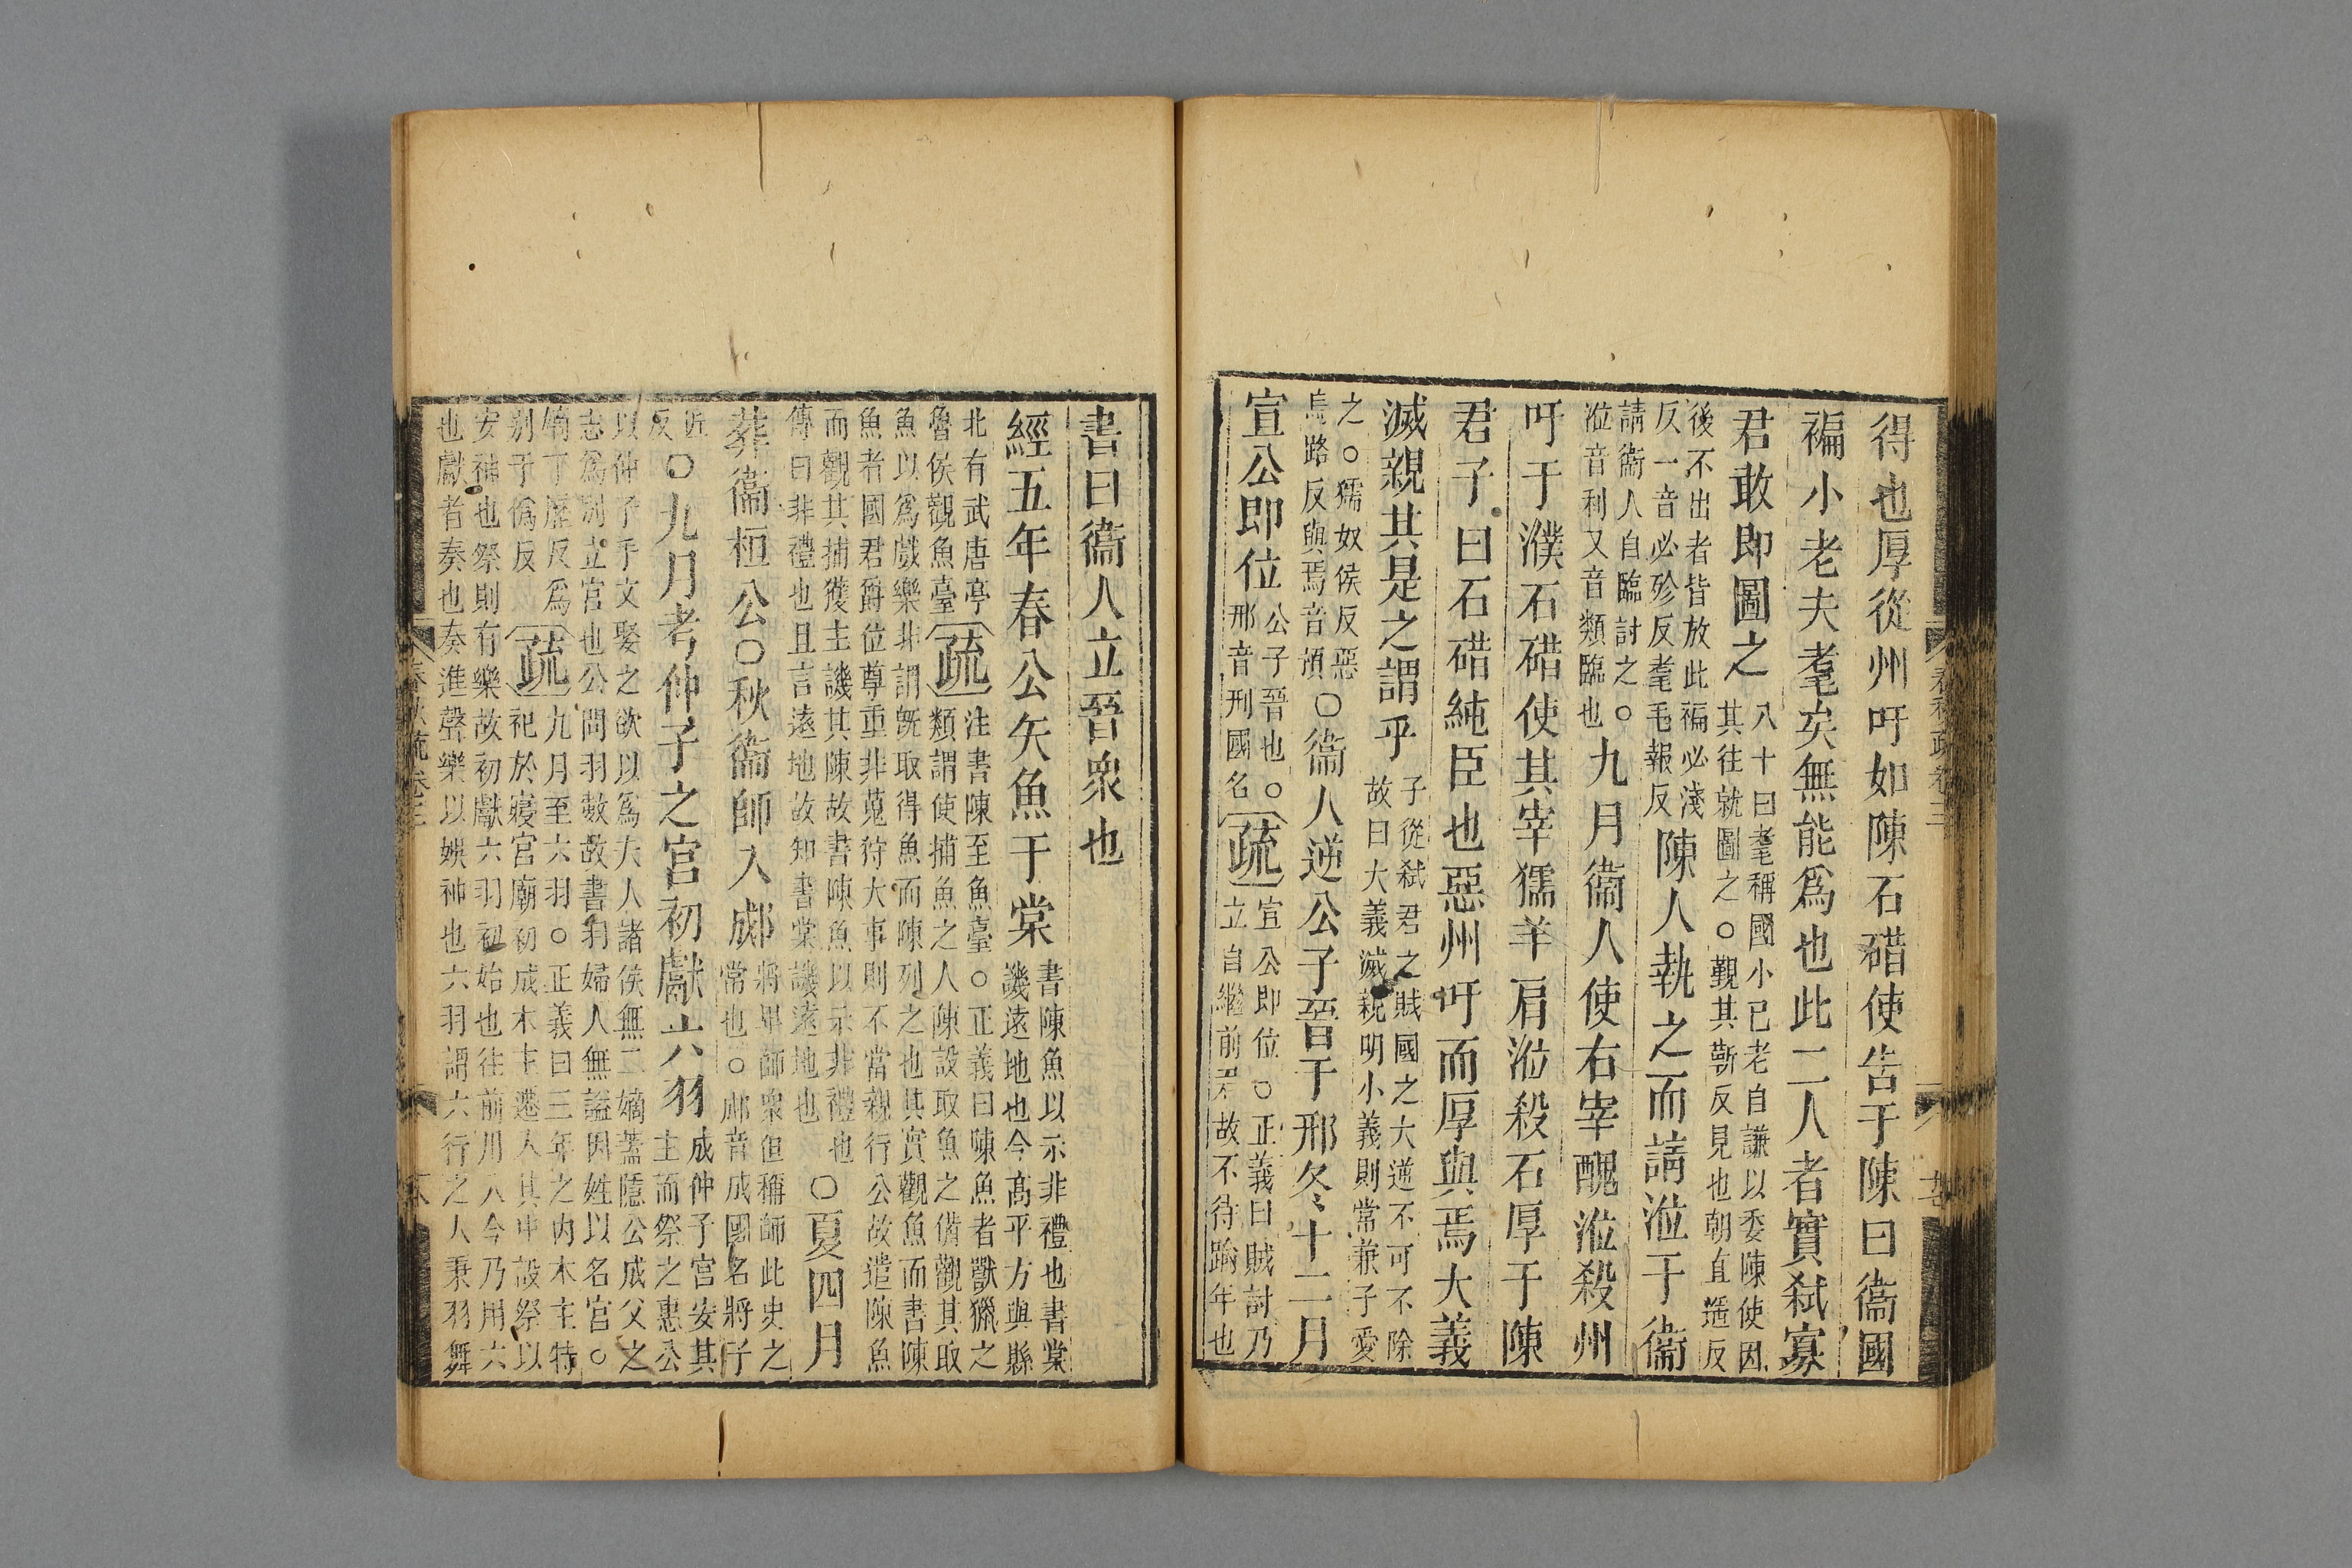 得也厚從州吁如陳石碏使告于陳曰衞國
褊小老夫耄矣無能爲也此二人者實弑寡
君敢即圖之
八十曰耄稱國小已老自謙以委陳使因
其往就圖之○覲其靳反見也朝直遥反
後不出者皆放此褊必淺
反一音必殄反耄毛報反
陳人執之而請涖于衞
請衞人自臨討之○
涖音利又音類臨也
九月衞人使右宰醜涖殺州
吁于濮石碏使其宰獳羊肩涖殺石厚于陳
君子曰石碏純臣也惡州吁而厚與焉大義
滅親其是之謂乎
子從弑君之賊國之大逆不可不除
故曰大義滅親明小義則常兼子愛
之○獳奴侯反惡
烏路反與焉音預
○衞人逆公子晉于邢冬十二月
宣公即位
公子晉也○
邢音刑國名
疏
宣公即位○正義曰賊討乃
立自繼前君故不待踰年也
春秋疏卷三
書曰衞人立晉衆也
經五年春公矢魚于棠
書陳魚以示非禮也書棠
譏遠地也今高平方與縣
北有武唐亭
魯侯觀魚臺
疏
注書陳至魚臺○正義曰陳魚者獸獵之
類謂使捕魚之人陳設取魚之備觀其取
魚以爲戲樂非謂既取得魚而陳列之也其實觀魚而書陳
魚者國君爵位尊重非蒐狩大事則不當親行公故遣陳魚
而觀其捕獲主譏其陳故書陳魚以示非禮也
傳曰非禮也且言遠地故知書棠譏遠地也
○夏四月
葬衞桓公○秋衞師入郕
將卑師衆但稱師此史之
常也○郕音成國名將子
匠
反
○九月考仲子之宮初獻六羽
成仲子宮安其
主而祭之惠公
以仲子手文娶之欲以爲夫人諸侯無二嫡蓋隱公成父之
志爲別立宮也公問羽數故書羽婦人無謚因姓以名宮○
嫡丁歷反爲
別于僞反
疏
九月至六羽○正義曰三年之内木主特
祀於寢宮廟初成木主遷入其中設祭以
安神也祭則有樂故初獻六羽初始也往前用八今乃用六
也獻者奏也奏進聲樂以娛神也六羽謂六行之人秉羽舞
春秋疏卷三